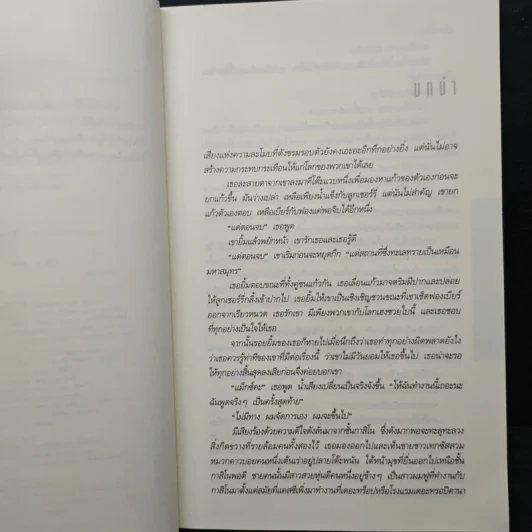 บทนำ
เสียงแห่งความละโมบที่ดังขรมรอบตัวยังคงเอะอะอึกทึกอย่างยิ่ง แต่นั่นไม่อาจ
สร้างความกระทบกระเทือนให้แก่โลกของพวกเขาได้เลย
เธอละสายตาจากเขาลงมาที่โต๊ะแวบหนึ่งเพื่อมองหาแก้วของตัวเองก่อนจะ
ยกแก้วขึ้น มันว่างเปล่า เหลือเพียงน้ำแข็งกับลูกเชอร์รี แต่นั่นไม่สำคัญ เขายก
แก้วตัวเองตอบ เหลือเบียร์กับฟองแค่พอจิบได้อีกหนึ่ง
“แค่ตอนจบ” เธอพูด
เขายิ้มแล้วพยักหน้า เขารักเธอและเธอรู้ดี
“แค่ตอนจบ” เขาเริ่มก่อนจะหยุดกึก “แค่สถานที่ซึ่งทะเลทรายเป็นเหมือน
มหาสมุทร”
เธอยิ้มตอบขณะที่ทั้งคู่ชนแก้วกัน เธอเลื่อนแก้วมาจดริมฝีปากและปล่อย
ให้ลูกเชอร์รีกลิ้งเข้าปากไป เธอยิ้มให้เขาเป็นเชิงเชิญชวนขณะที่เขาเช็ดฟองเบียร์
ออกจากเรียวหนวด เธอรักเขา มีเพียงพวกเขากับโลกเฮงซวยใบนี้ และเธอชอบ
ที่ทุกอย่างเป็นใจให้เธอ
จากนั้นรอยยิ้มของเธอก็หายไปเมื่อนึกถึงว่าเธอทำทุกอย่างผิดพลาดยังไง
ว่าเธอควรรู้ท่าทีของเขาที่มีต่อเรื่องนี้ ว่าเขาไม่มีวันยอมให้เธอขึ้นไป เธอน่าจะรอ
ให้ทุกอย่างสิ้นสุดลงเสียก่อนจึงค่อยบอกเขา
“แม็กซ์คะ” เธอพูด น้ำเสียงเปลี่ยนเป็นจริงจังขึ้น “ให้ฉันทำงานนี้เถอะนะ
ฉันพูดจริงๆ เป็นครั้งสุดท้าย”
“ไม่มีทาง ผมจัดการเอง ผมจะขึ้นไป”
มีเสียงร้องด้วยความดีใจดังลั่นมาจากชั้นกาสิโน ซึ่งดังมากพอจะทะลุทะลวง
สิ่งกีดขวางที่รายล้อมคนทั้งสองไว้ เธอมองออกไปและเห็นชายชาวเทกซัสสวม
หมวกคาวบอยคนหนึ่งเต้นเร่าอยู่ปลายโต๊ะพนัน ใต้หน้ามุขที่ยื่นออกไปเหนือชั้น
กาสิโนพอดี ชายคนนั้นมีสาวสวยหุ่นดีคนหนึ่งอยู่ข้างๆ เป็นสาวผมฟูที่ทำงานกับ
กาสิโนมาตั้งแต่สมัยที่แคสซีเพิ่งมาทำงานที่เดอะทร็อปหรือโรงแรมเดอะทรอปิคานา